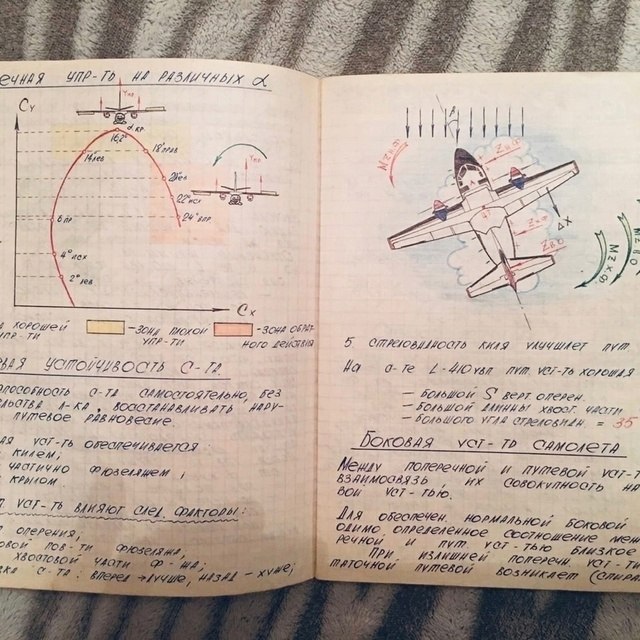 ЕЧНАЯ УПР-ТЬ НА РАЗЛИЧНЫХ α.
Cy
Yкр
αкр
16,2°
14 лев
18° прав
20 лев
22° исх
24° впр
6 пр
4° исх
2° лев
Cx
ХОРОШЕЙ УПР-ТИ
- ЗОНА ПЛОХОЙ УПР-ТИ
- ЗОНА ОБРАТ-
НОГО ДЕЙСТВИЯ
ВАЯ УСТОЙЧИВОСТЬ С-ТА.
СПОСОБНОСТЬ С-ТА САМОСТОЯТЕЛЬНО, БЕЗ
ЛЬСТВА Л-КА, ВОССТАНАВЛИВАТЬ НАРУ-
ПУТЕВОЕ РАВНОВЕСИЕ.
АЯ УСТ-ТЬ ОБЕСПЕЧИВАЕТСЯ:
КИЛЕМ;
ЧАСТИЧНО ФЮЗЕЛЯЖЕМ;
КРЫЛОМ.
УСТ-ТЬ ВЛИЯЮТ СЛЕД. ФАКТОРЫ:
ОПЕРЕНИЯ,
ОВОЙ ПОВ-ТИ ФЮЗЕЛЯЖА,
ХВОСТОВОЙ ЧАСТИ Ф-ЖА;
ВКА С-ТА: ВПЕРЕД → ЛУЧШЕ, НАЗАД - ХУЖЕ;
β
ΔX
5. СТРЕЛОВИДНОСТЬ КИЛЯ УЛУЧШАЕТ ПУТ.
НА С-ТЕ L-410УВП ПУТ. УСТ-ТЬ ХОРОШАЯ
— БОЛЬШОЙ S ВЕРТ. ОПЕРЕН.
— БОЛЬШОЙ ДЛИННЫ ХВОСТ. ЧАСТИ
— БОЛЬШОГО УГЛА СТРЕЛОВИДН. = 35
БОКОВАЯ УСТ-ТЬ САМОЛЕТА
МЕЖДУ ПОПЕРЕЧНОЙ И ПУТЕВОЙ УСТ-Т
ВЗАИМОСВЯЗЬ, ИХ СОВОКУПНОСТЬ НА
ВОЙ УСТ-ТЬЮ.
ДЛЯ ОБЕСПЕЧЕН. НОРМАЛЬНОЙ БОКОВОЙ
ОДИМО ОПРЕДЕЛЕННОЕ СООТНОШЕНИЕ МЕЖ
РЕЧНОЙ И ПУТ. УСТ-ТЬЮ БЛИЗКОЕ
ПРИ ИЗЛИШНЕЙ ПОПЕРЕЧН. УСТ-ТИ
ТАТОЧНОЙ ПУТЕВОЙ ВОЗНИКАЕТ (СПИРА